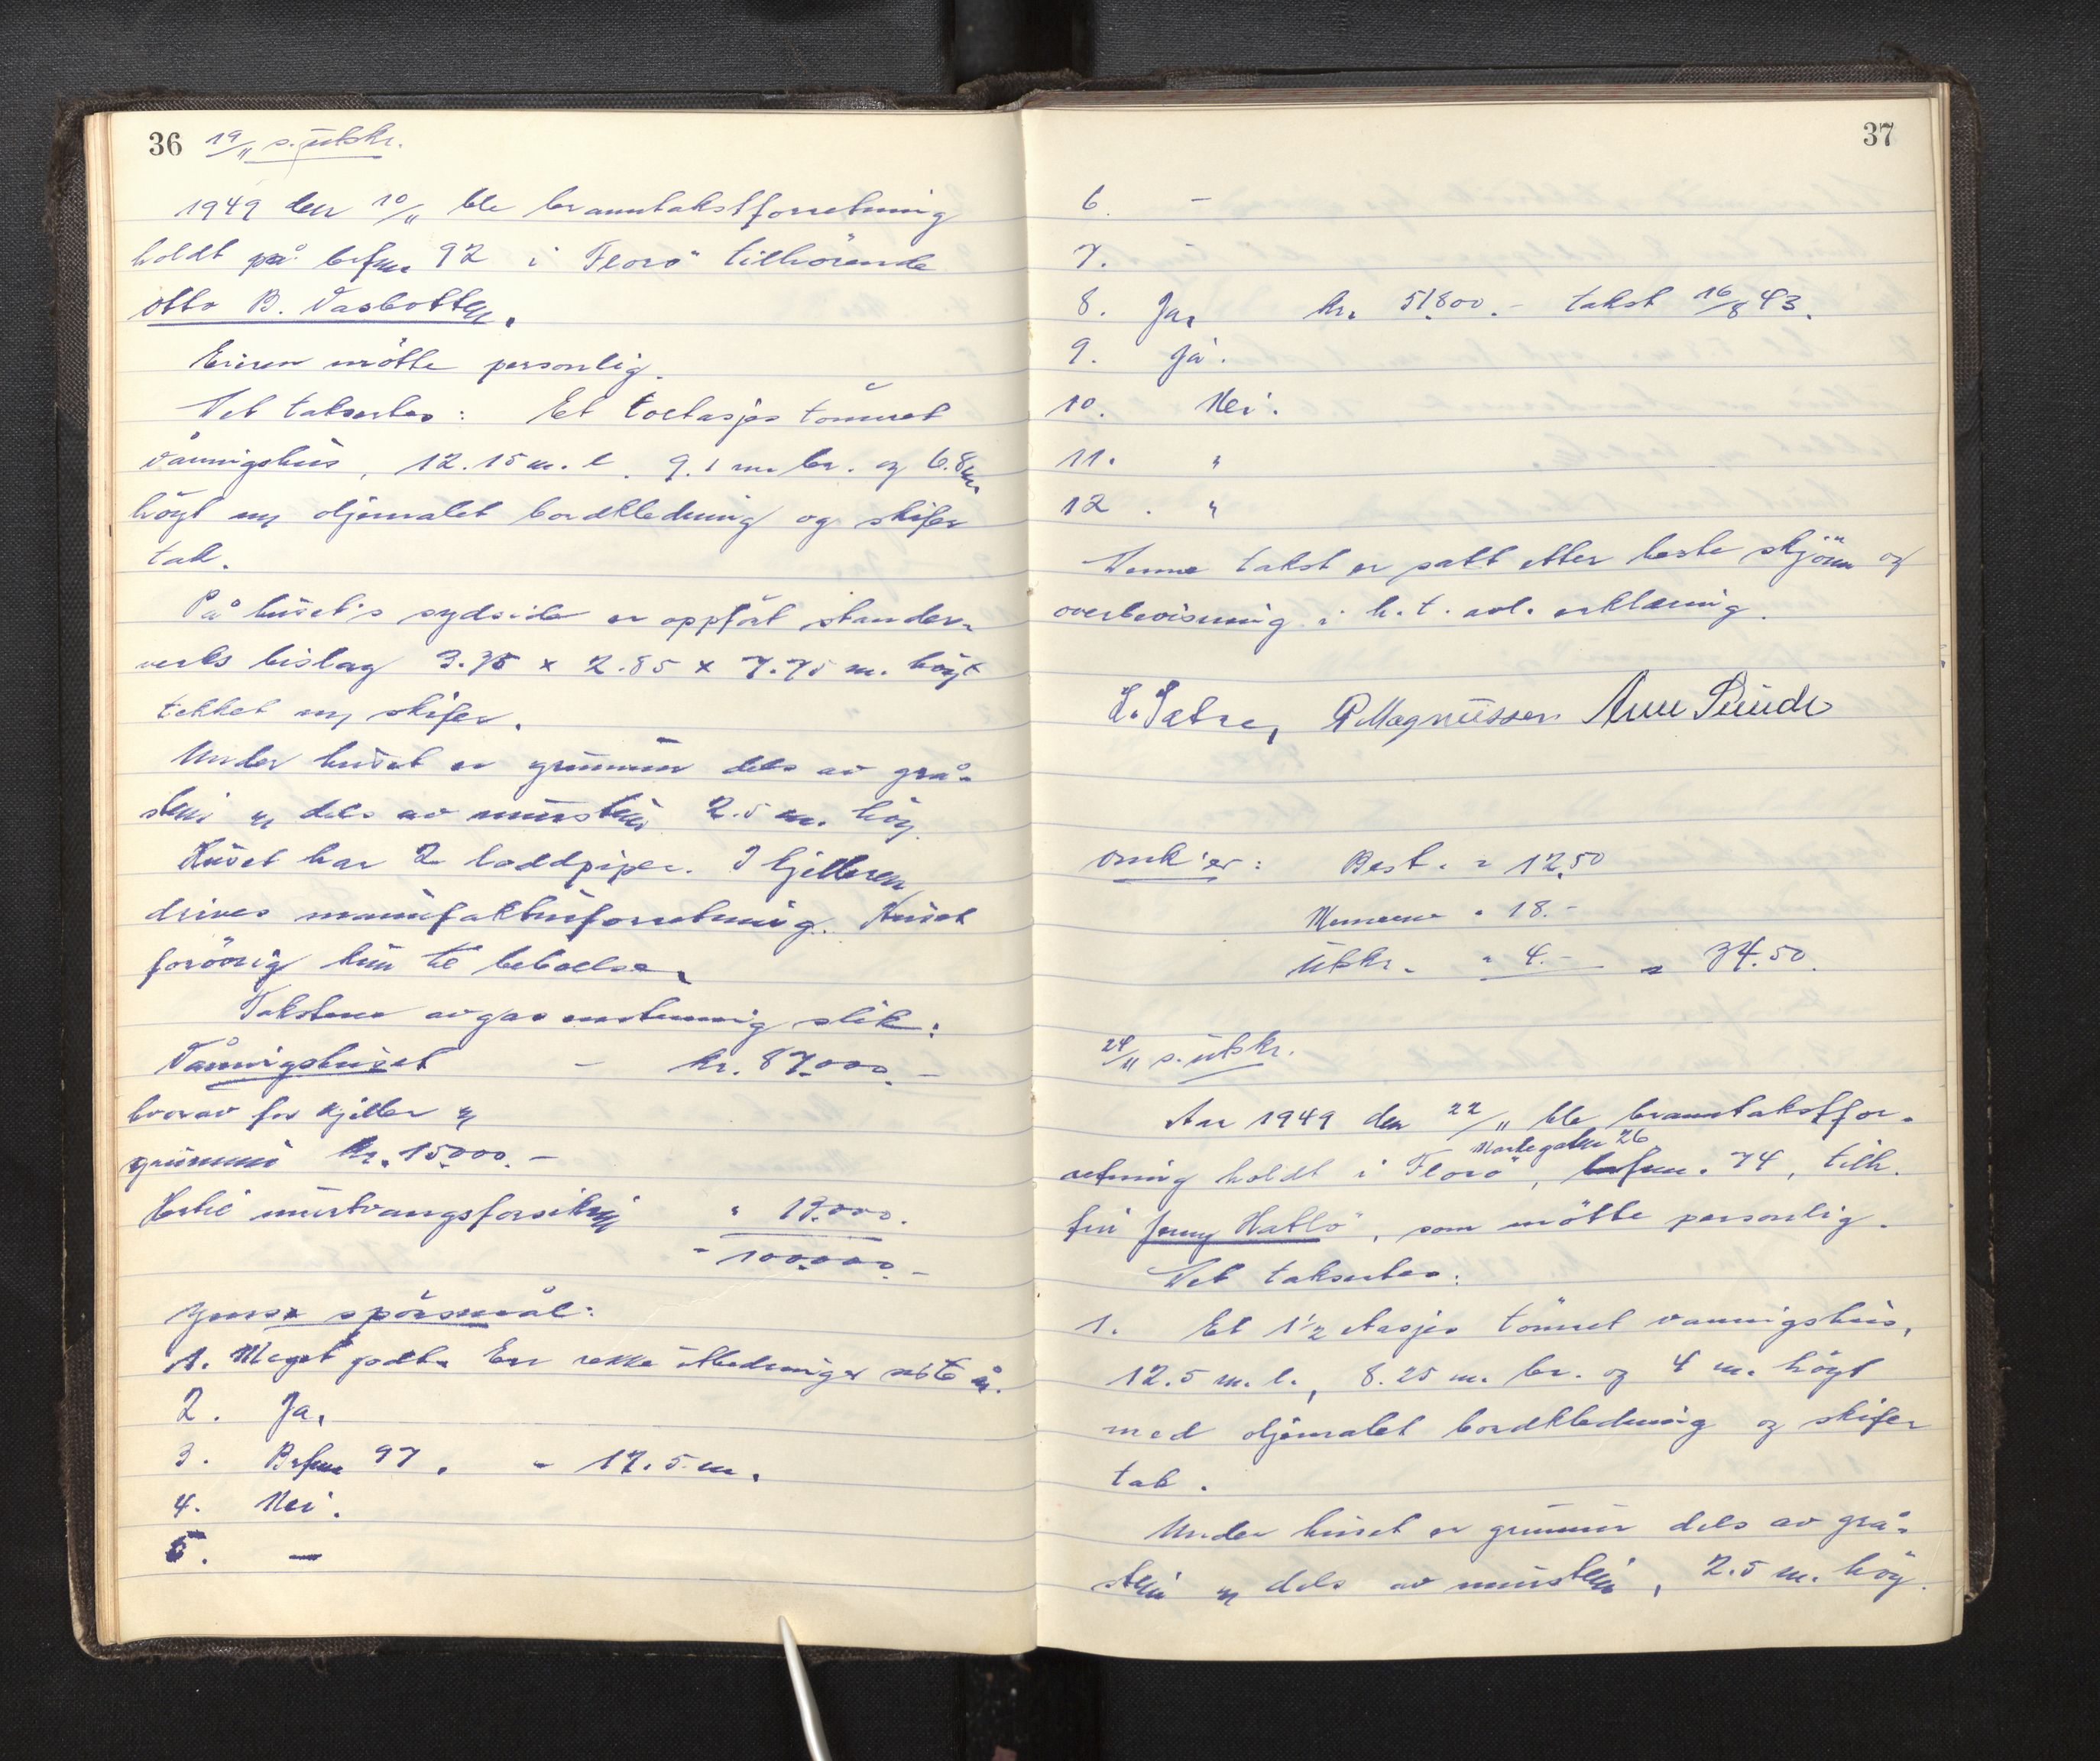 36 19/11 s. utskr.
1949 den 10/11 ble branntakstforretning
holdt på brfnr. 92 i Florö tilhörende
Otto B. Vasbotten.
Eieren mötte personlig.
Det taksertes: Et toetasjes tömret
våningshus, 12.15 m. l. 9.1 m. br. og 6.8 m.
höyt m/ oljemalet bordkledning og skifer
tak.
På huset's sydside er oppfört stender-
verks bislag 3.35 x 2.85 x 7.75 m. höyt
tekket m/ skifer.
Under huset er grunnmur dels av grå-
stein og dels av murstein 2.5 m. höy.
Huset har 2 loddpiper. I kjelleren
drives manufakturforretning. Huset
forövrig kun til beboelse.
Taksten avgas enstemmig slik:
Våningshuset - kr. 87.000.-
hvorav for kjeller og
grunnmur kr. 15000.-
Hertil murtvangsforsikring " 13.000.
- 100.000.-
Spörsmål:
1. Meget godt. En rekke utbedninger siste år.
2. Ja.
3. Brfnr 97. - 17.5 m.
4. Nei.
5. -
37
6. -
7.
8. Ja, kr. 51800.- takst 16/8 43.
9. Ja.
10. Nei.
11. "
12. "
Denne takst er satt etter beste skjönn og
overbevisning i h. t. avl. erklæring.
P. Magnussen Arne Sunde
Omk'er: Best. = 12.50
Mennene " 18.-
Utskr. " 4.- = 34.50.
24/11 s. utskr.
Aar 1949 den 22/11 ble branntakstfor-
Markegaten 26
retning holdt i Florö, brfnr. 74, tilh.
fru Jenny Hatlö, som mötte personlig.
Det taksertes:
1. Et 1 1/2 etasjes tömret vaningshus,
12.5 m. l., 8.25 m. br. og 4 m. höyt
med oljemalet bordkledning og skifer
tak.
Under huset er grunnmur dels av grå-
stein og dels av murstein, 2.5 m. höy.